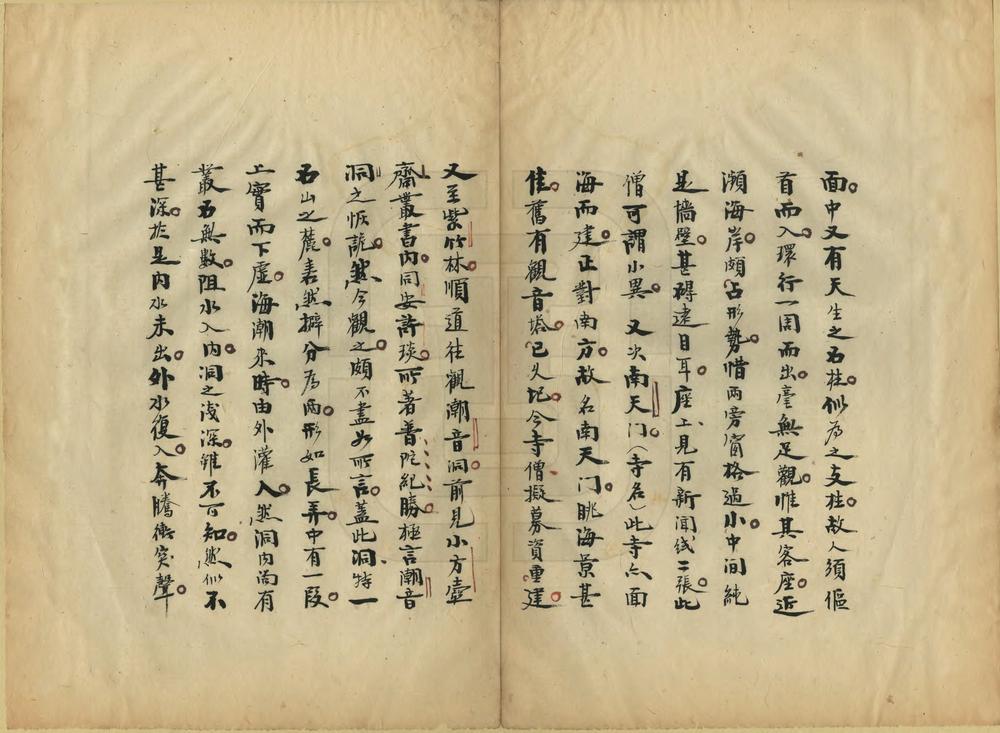 面。中又有天生之石柱。似爲之支柱。故人須傴
首而入。環行一周而出。毫無足觀。惟其客座。近
瀕海岸。頗占形勢。惜兩旁窗格過小。中間純
是墻壁。甚礙遠目耳。座上見有新聞紙二張。此
僧可謂小異。又次南天门。（寺名）此寺亦面
海而建。正對南方。故名南天门。眺海景甚
佳。舊有觀音塔。已久圮。今寺僧擬募資重建。
又至紫竹林。順道往觀潮音洞。前見小方壺
齋叢書内。同安許琰。所著普陀紀勝。極言潮音
洞之恢詭。然今觀之。頗不盡如所言。蓋此洞特一
石山之麓。砉然擗分爲兩。形如長弄。中有一段。
上實而下虛。海潮來時。由外灌入。然洞内尚有
叢石無數。阻水入内。洞之淺深。雖不可知。然似不
甚深。於是内水未出。外水復入。奔騰衝突。聲。